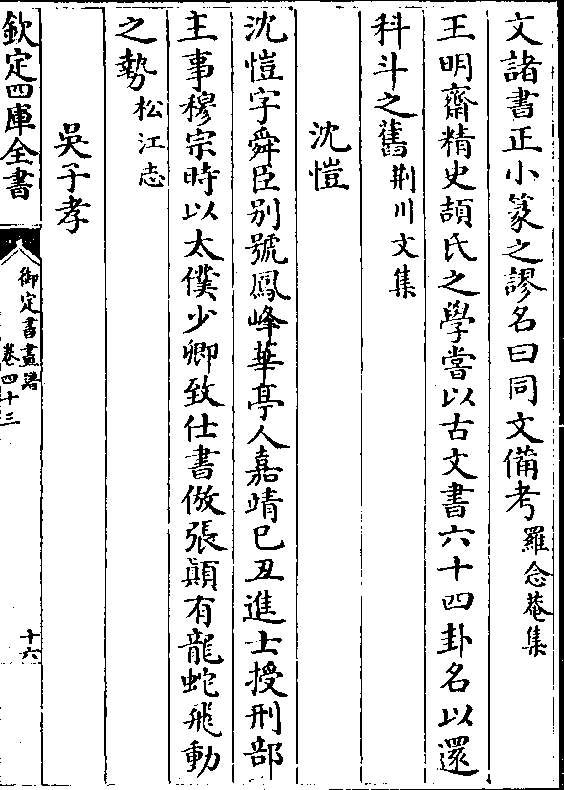 文諸書正小篆之謬名曰同文備考羅念菴集
王明齋精史頡氏之學嘗以古文書六十四卦名以還
科斗之舊荆川文集
沈愷
沈愷字舜臣别號鳳峰華亭人嘉靖已丑進士授刑部
主事穆宗時以太僕少卿致仕書倣張顛有龍蛇飛動
之勢松江志
吳子孝
欽定四庫全書
御定書畫譜
卷四十三
十六